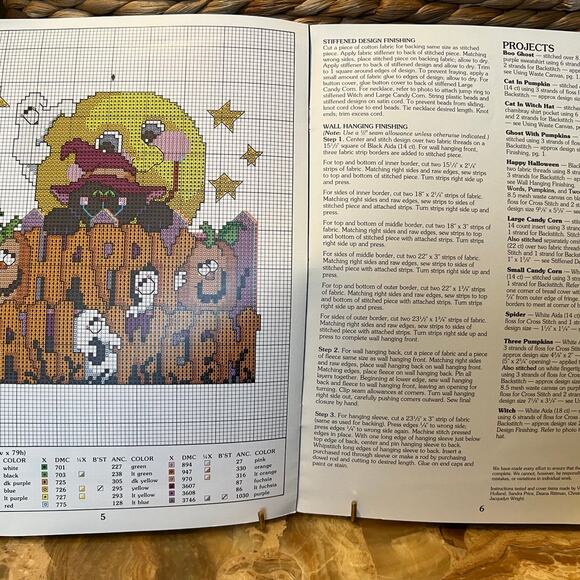 w x 79h)
COLOR X DMC ¼X B'ST ANC. COLOR X DMC ¼X B'ST ANC. COLOR
white 701 227 lt green 894 27 pink
black 703 238 lt green 947 330 orange
dk purple 725 305 dk yellow 970 316 lt orange
blue 726 295 yellow 3607 87 fuchsia
lt purple 727 293 lt yellow 3608 86 lt fuchsia
red 775 128 lt blue 3746 1030 purple
5
STIFFENED DESIGN FINISHING
Cut a piece of cotton fabric for backing same size as stitched
piece. Apply fabric stiffener to back of stitched piece. Matching
wrong sides, place stitched piece on backing fabric; allow to dry.
Apply stiffener to back of stiffened design and allow to dry. Trim
to 1 square around edges of design. To prevent fraying, apply a
small amount of fabric glue to edges of design; allow to dry. For
button cover, glue button cover to back of stiffened design. For
Large Candy Corn. For necklace, refer to photo to attach jump ring to
stiffened Witch and Large Candy Corn. String plastic beads and
stiffened designs on satin cord. To prevent beads from sliding,
knot cord close to end beads. Tie necklace desired length. Knot
ends, trim excess cord.
WALL HANGING FINISHING
(Note: Use a ½" seam allowance unless otherwise indicated.)
Step 1. Center and stitch design over two fabric threads on a
15½" square of Black Aida (14 ct). For wall hanging front,
three fabric strip borders are added to stitched piece.
For top and bottom of inner border, cut two 15½" x 2¼"
strips of fabric. Matching right sides and raw edges, sew strips to
top and bottom of stitched piece. Turn strips right side up
and press.
For sides of inner border, cut two 18" x 2¼" strips of fabric.
Matching right sides and raw edges, sew strips to sides of
stitched piece with attached strips. Turn strips right side up
and press.
For top and bottom of middle border, cut two 18" x 3" strips of
fabric. Matching right sides and raw edges, sew strips to top
and bottom of stitched piece with attached strips. Turn strips
right side up and press.
For sides of middle border, cut two 22" x 3" strips of fabric.
Matching right sides and raw edges, sew strips to sides of
stitched piece with attached strips. Turn strips right side up
and press.
For top and bottom of outer border, cut two 22" x 1¾" strips
of fabric. Matching right sides and raw edges, sew strips to top
and bottom of stitched piece with attached strips. Turn strips
right side up and press.
For sides of outer border, cut two 23½" x 1¾" strips of
fabric. Matching right sides and raw edges, sew strips to sides
of stitched piece with attached strips. Turn strips right side up
and press to complete wall hanging front.
Step 2. For wall hanging back, cut a piece of fabric and a piece
of fleece same size as wall hanging front. Matching right sides
and raw edges, place wall hanging back on wall hanging front.
Matching edges, place fleece on wall hanging back. Pin all
layers together. Beginning at lower edge, sew wall hanging
back and fleece to wall hanging front, leaving an opening for
turning. Clip seam allowances at corners. Turn wall hanging
right side out, carefully pushing corners outward. Sew final
closure by hand.
Step 3. For hanging sleeve, cut a 23½" x 3" strip of fabric
(same as used for backing). Press edges ¼" to wrong side;
press edges ¼" to wrong side again. Machine stitch pressed
edges in place. With one long edge of hanging sleeve just below
top edge of back, center and pin hanging sleeve to back.
Whipstitch long edges of hanging sleeve to back. Insert a
purchased rod through sleeve or make a rod by purchasing a
dowel rod and cutting to desired length. Glue on end caps and
paint or stain.
6
PROJECTS
Boo Ghost — stitched over
purple sweatshirt using 6 strands
2 strands for Backstitch —
see Using Waste Canvas, pg. 1
Cat In Pumpkin —
(14 ct) using 3 strands of floss
Backstitch — approx design
Cat In Witch Hat —
chambray shirt pocket using
and 2 strands for Backstitch
— see Using Waste Canvas,
Ghost With Pumpkins —
using 3 strands of floss for
Backstitch — approx design
Finishing, pg. 1.
Happy Halloween — Black
over two fabric threads using
3 strands for Backstitch —
see Wall Hanging Finishing
Words, Pumpkins, and
8.5 mesh waste canvas on
floss for Cross Stitch and 2
design size
Large Candy Corn —
14 count insert using 3 strands
1 strand for Backstitch.
Also stitched separately
(22 ct) over two fabric threads
Cross Stitch and 1 strand
1" x 1¼" — see Stiffened
Small Candy Corn —
(14 ct) — stitched using 3
1 strand for Backstitch.
one corner of bread cover
¾" from outer edge of fringe
borders to meet at corner
Spider — White Aida (14 ct)
floss for Cross Stitch and 1
design size
Three Pumpkins — White
3 strands of floss for Cross Stitch
approx design size
opening) — applied
Also stitched on white fingertip
using 3 strands of floss for
Backstitch — approx design
8.5 mesh waste canvas
floss for Cross Stitch and 2
design size
Witch — White Aida (14 ct)
using 6 strands of floss for
Backstitch — approx design
Design Finishing. Refer to photo
hat.
We have made every effort to ensure that
complete. We cannot, however, be
mistakes, or variations in individual work.
Instructions tested and cover items made by
Holland, Sandra Price, Deana Rittman,
Jacquelyn Wright.